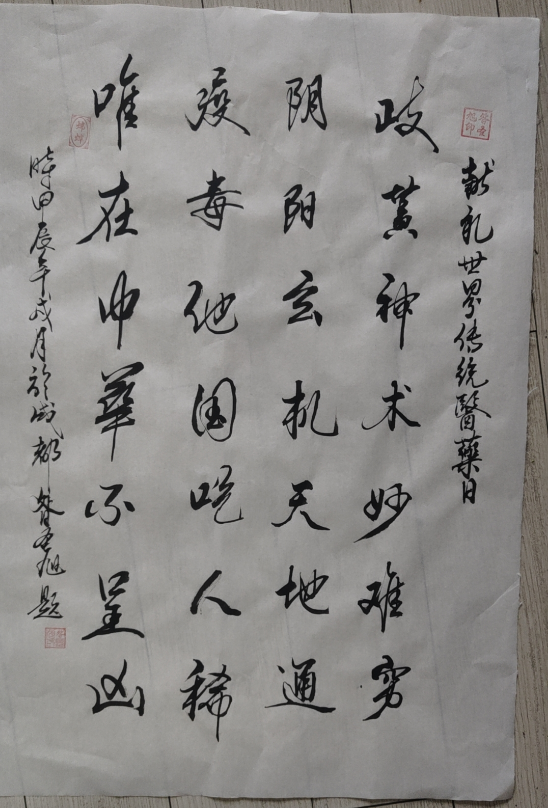 献礼世界传统醫藥日
歧黄神术妙难穷
阴阳玄机天地通
疫毒他国吃人稀
唯在中華不呈凶
時甲辰年戌月於成都 旭题